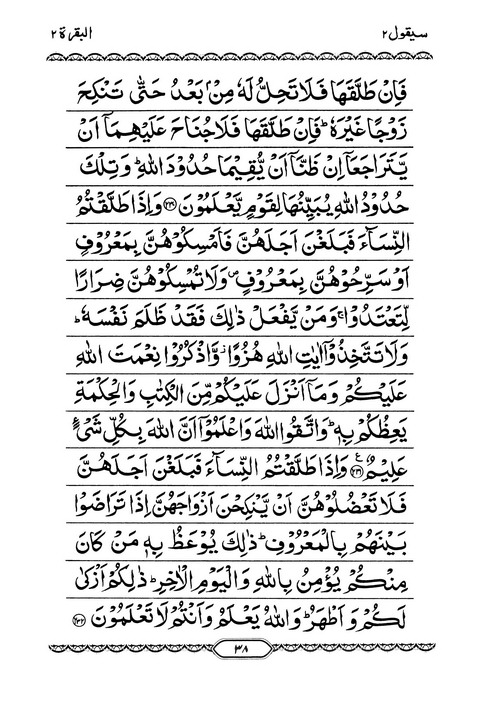 سيقول ٢
البقرة ٢
فَاِنْ طَلَّقَهَا فَلَا تَحِلُّ لَهٗ مِنْۢ بَعْدُ حَتّٰى تَنْكِحَ
زَوْجًا غَيْرَهٗ ؕ فَاِنْ طَلَّقَهَا فَلَا جُنَاحَ عَلَيْهِمَاۤ اَنْ
يَّتَرَاجَعَاۤ اِنْ ظَنَّاۤ اَنْ يُّقِيْمَا حُدُوْدَ اللّٰهِ ؕ وَتِلْكَ
حُدُوْدُ اللّٰهِ يُبَيِّنُهَا لِقَوْمٍ يَّعْلَمُوْنَ ﴿۲۳۰﴾ وَاِذَا طَلَّقْتُمُ
النِّسَآءَ فَبَلَغْنَ اَجَلَهُنَّ فَاَمْسِكُوْهُنَّ بِمَعْرُوْفٍ
اَوْ سَرِّحُوْهُنَّ بِمَعْرُوْفٍ ۪ وَلَا تُمْسِكُوْهُنَّ ضِرَارًا
لِّتَعْتَدُوْا ۚ وَمَنْ يَّفْعَلْ ذٰلِكَ فَقَدْ ظَلَمَ نَفْسَهٗ ؕ
وَلَا تَتَّخِذُوْۤا اٰيٰتِ اللّٰهِ هُزُوًا ؗ وَّاذْكُرُوْا نِعْمَتَ اللّٰهِ
عَلَيْكُمْ وَمَاۤ اَنْزَلَ عَلَيْكُمْ مِّنَ الْكِتٰبِ وَالْحِكْمَةِ
يَعِظُكُمْ بِهٖ ؕ وَاتَّقُوا اللّٰهَ وَاعْلَمُوْۤا اَنَّ اللّٰهَ بِكُلِّ شَىْءٍ
عَلِيْمٌ ﴿۲۳۱﴾ ع وَاِذَا طَلَّقْتُمُ النِّسَآءَ فَبَلَغْنَ اَجَلَهُنَّ
فَلَا تَعْضُلُوْهُنَّ اَنْ يَّنْكِحْنَ اَزْوَاجَهُنَّ اِذَا تَرَاضَوْا
بَيْنَهُمْ بِالْمَعْرُوْفِ ؕ ذٰلِكَ يُوْعَظُ بِهٖ مَنْ كَانَ
مِنْكُمْ يُؤْمِنُ بِاللّٰهِ وَالْيَوْمِ الْاٰخِرِ ؕ ذٰلِكُمْ اَزْكٰى
لَكُمْ وَاَطْهَرُ ؕ وَاللّٰهُ يَعْلَمُ وَاَنْتُمْ لَا تَعْلَمُوْنَ ﴿۲۳۲﴾
٣٨